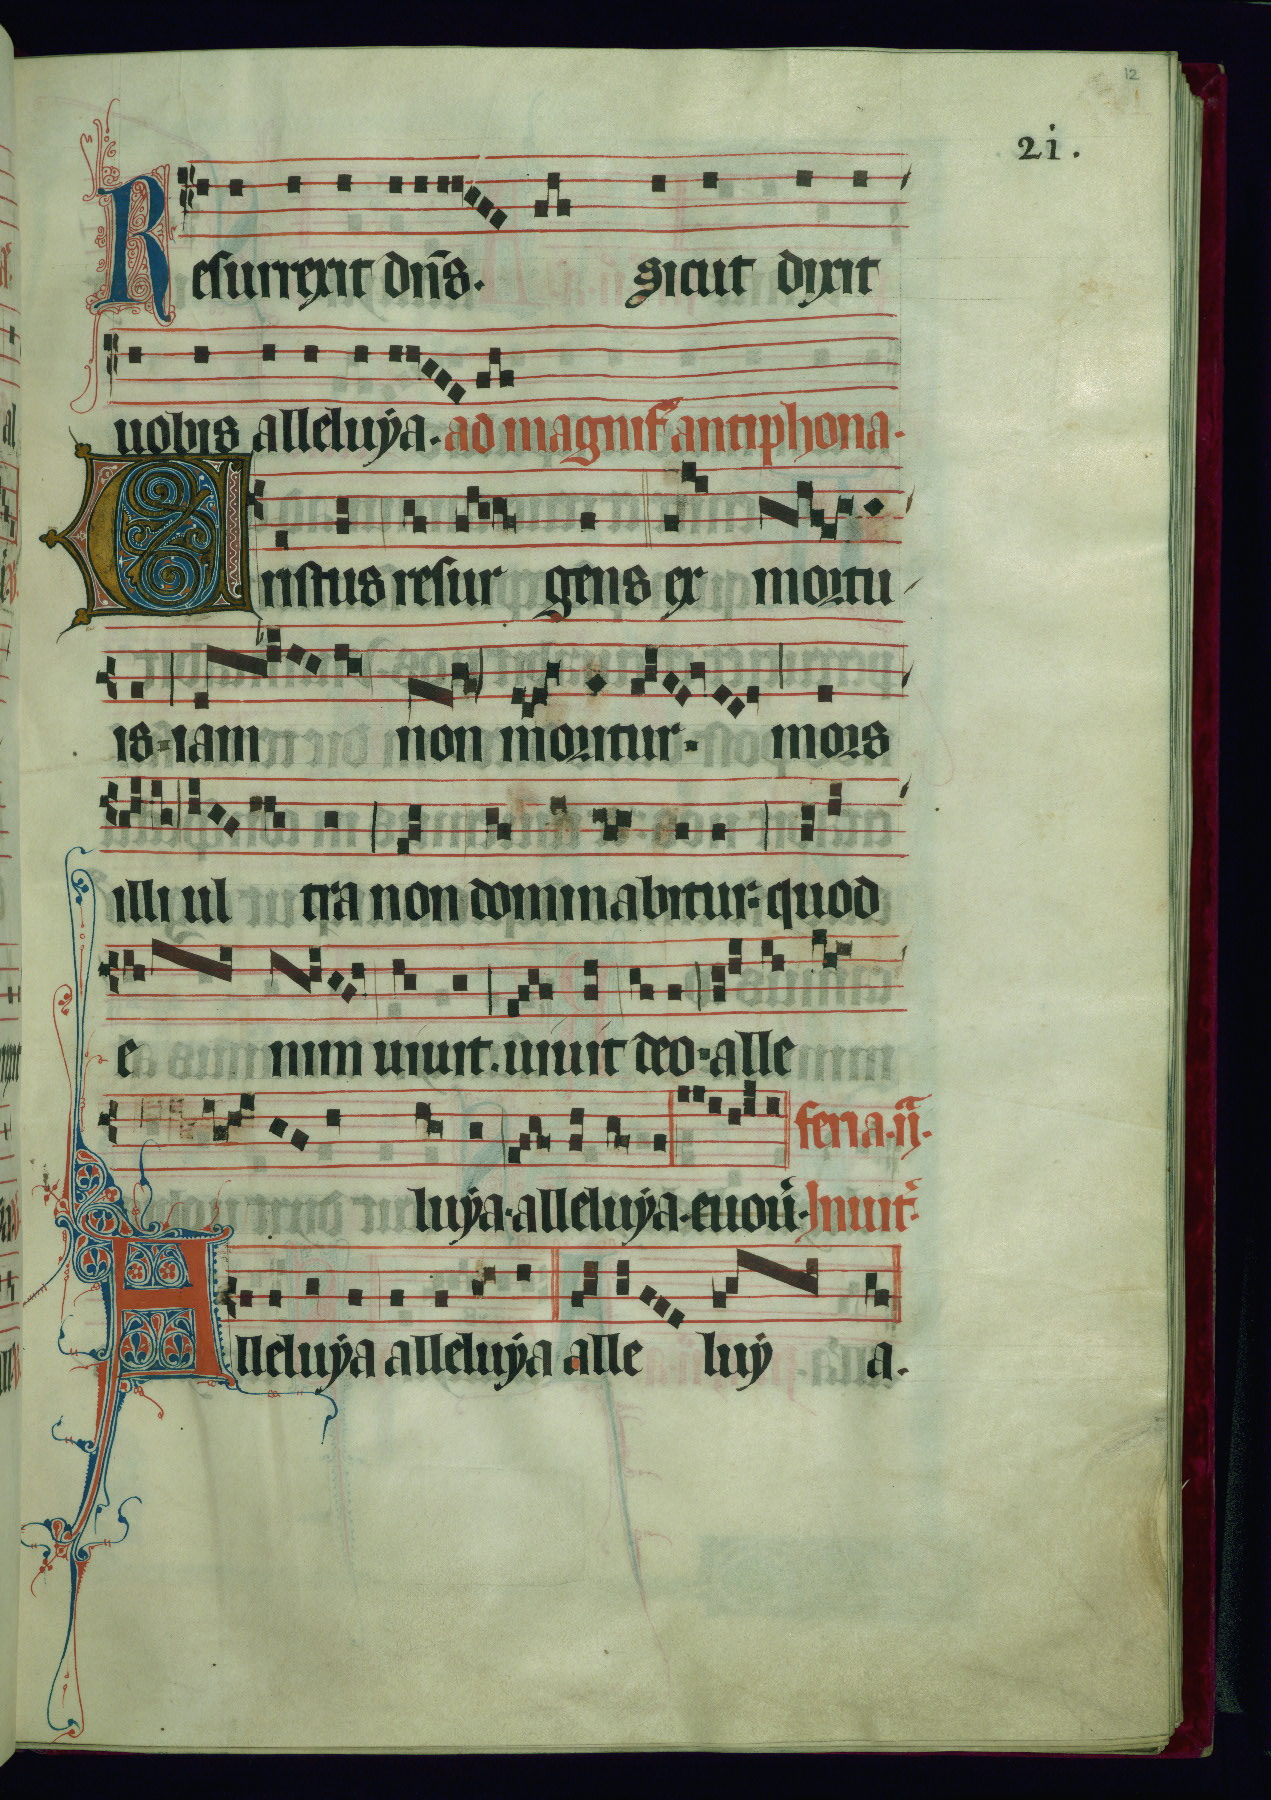 12
21.
Resurrexit dn̄s. sicut dixit
uobis alleluẏa. ad magnif̄ antiphona.
Cristus resur gens ex mortu
is. iam non moritur. mors
illi ul tra non dominabitur. quod
e nim uiuit. uiuit deo. alle
feria. ii.
luẏa. alleluẏa. euou. Inuit.
Alleluẏa alleluẏa alle luẏ a.